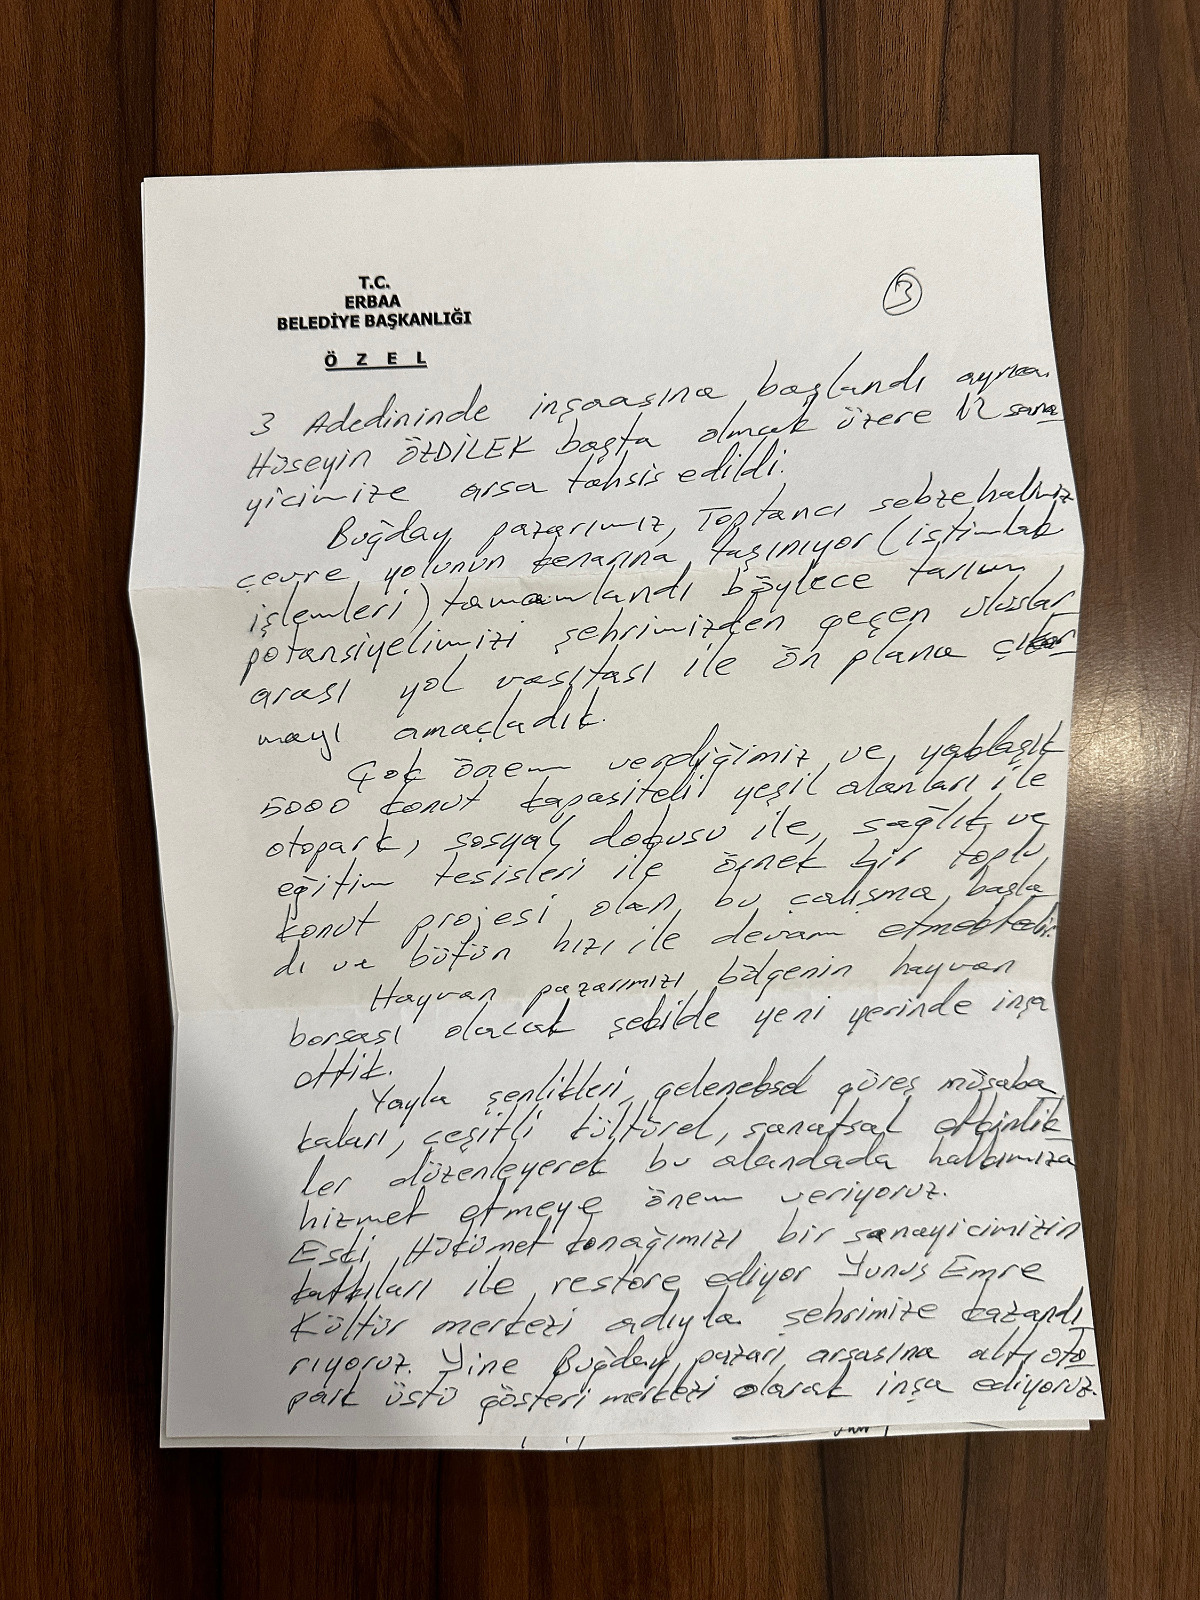 T.C.
ERBAA
BELEDİYE BAŞKANLIĞI
Ö Z E L
3
3 Adedininde inşaasına başlandı ayrıca
Hüseyin ÖZDİLEK başta olmak üzere 12 sana
yicimize arsa tahsis edildi.
Buğday pazarımız, Toptancı sebze halimiz
çevre yolunun kenarına taşınıyor (istimlak
işlemleri) tamamlandı böylece tarım
potansiyelimizi şehrimizden geçen uluslar
arası yol vasıtası ile ön plana çıkar
mayı amaçladık.
Çok önem verdiğimiz ve yaklaşık
5000 konut kapasiteli yeşil alanları ile
otopark, sosyal dokusu ile, sağlık ve
eğitim tesisleri ile örnek bir toplu
konut projesi olan bu çalışma başla
dı ve bütün hızı ile devam etmektedir.
Hayvan pazarımızı bölgenin hayvan
borsası olacak şekilde yeni yerinde inşa
ettik.
Yayla şenlikleri, geleneksel güreş müsaba
kaları, çeşitli kültürel, sanatsal etkinlik
ler düzenleyerek bu alandada halkımıza
hizmet etmeye önem veriyoruz.
Eski Hükümet konağımızı bir sanayicimizin
katkıları ile restore ediyor Yunus Emre
Kültür merkezi adıyla şehrimize kazandı
rıyoruz. Yine Buğday pazarı arsasına altı oto
park üstü gösteri merkezi olarak inşa ediyoruz.